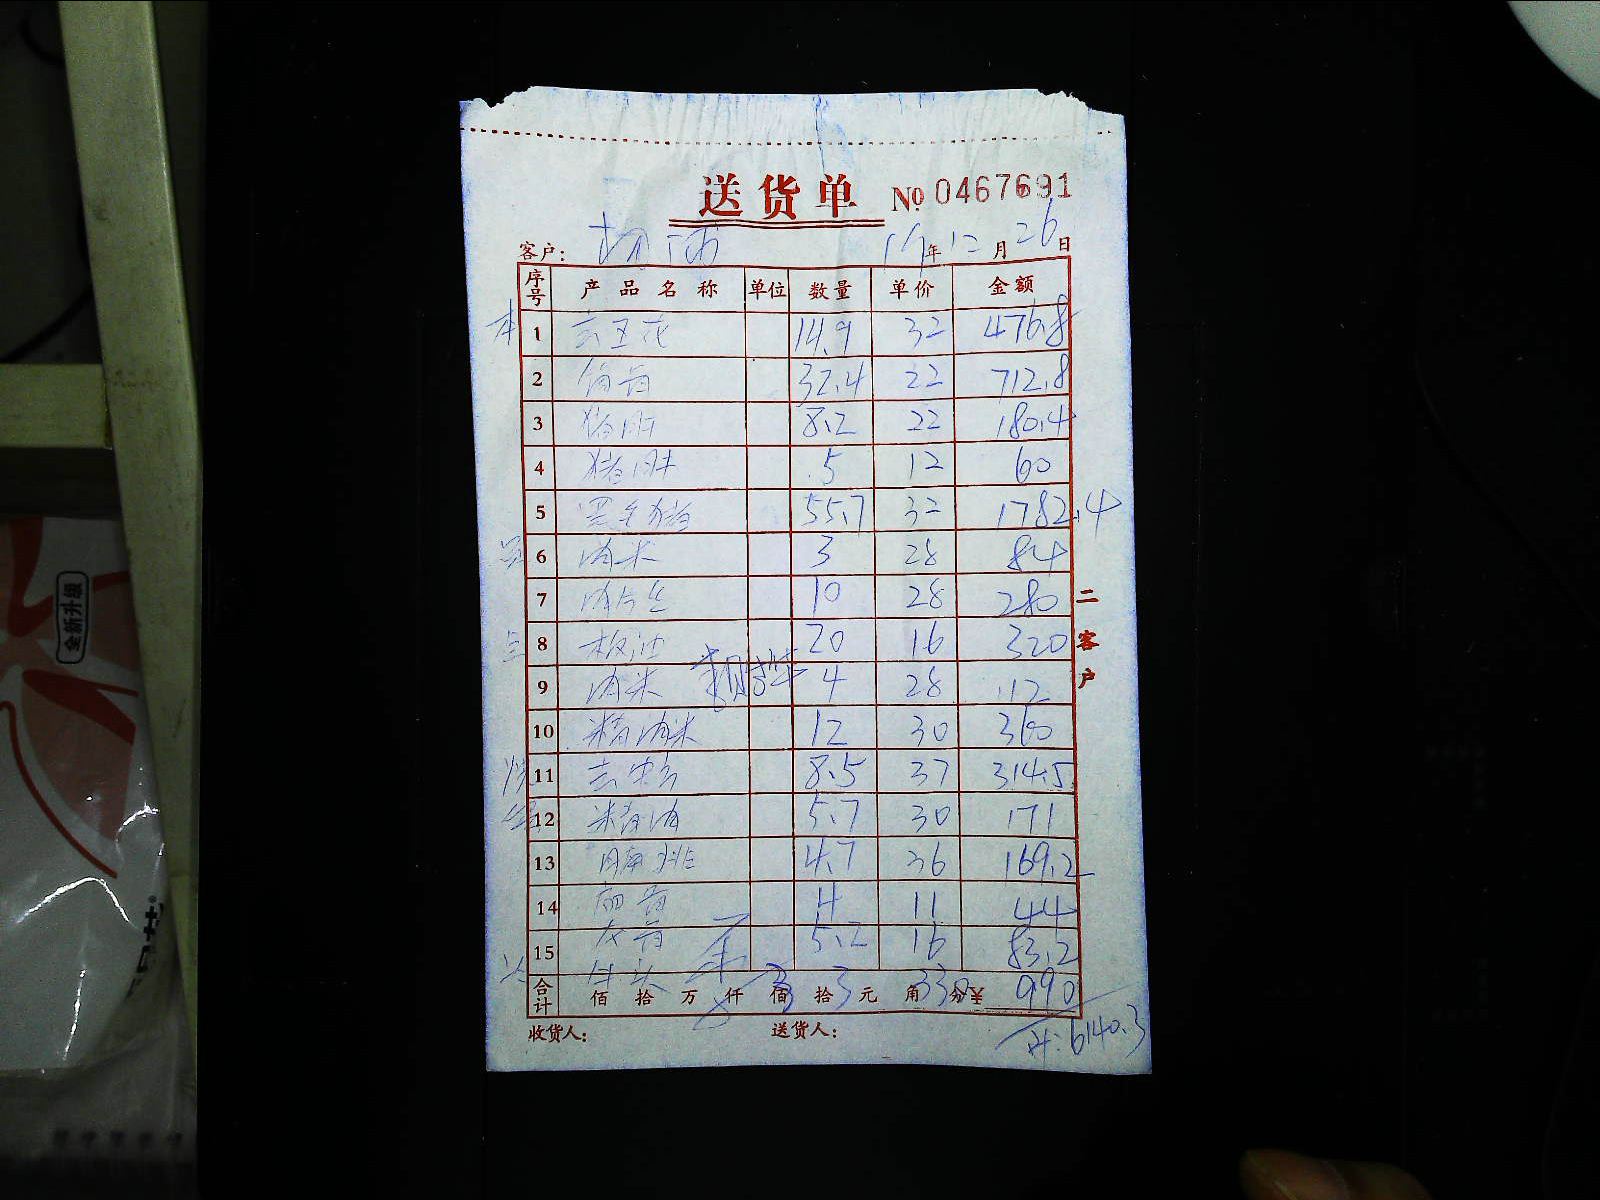 送货单 № 0467691
客户： 19年12月26日
序号 产品名称 单位 数量 单价 金额
1 去五花 14.9 32 476.8
2 筒骨 32.4 22 712.8
3 猪肝 8.2 22 180.4
4 猪肚 5 12 60
5 黑毛猪 55.7 32 1782.4
6 肉米 3 28 84
7 肉片丝 10 28 280
8 板油 20 16 320
9 肉米 4 28 112
10 精肉米 12 30 360
11 8.5 37 314.5
12 精肉 5.7 30 171
13 腩排 4.7 36 169.2
14 4 11 44
15 5.2 16 83.2
3 330 990
合计 佰 拾 万 仟 佰 拾 元 角 分 ¥
收货人： 送货人： 计：6140.3
二客户
全新升级